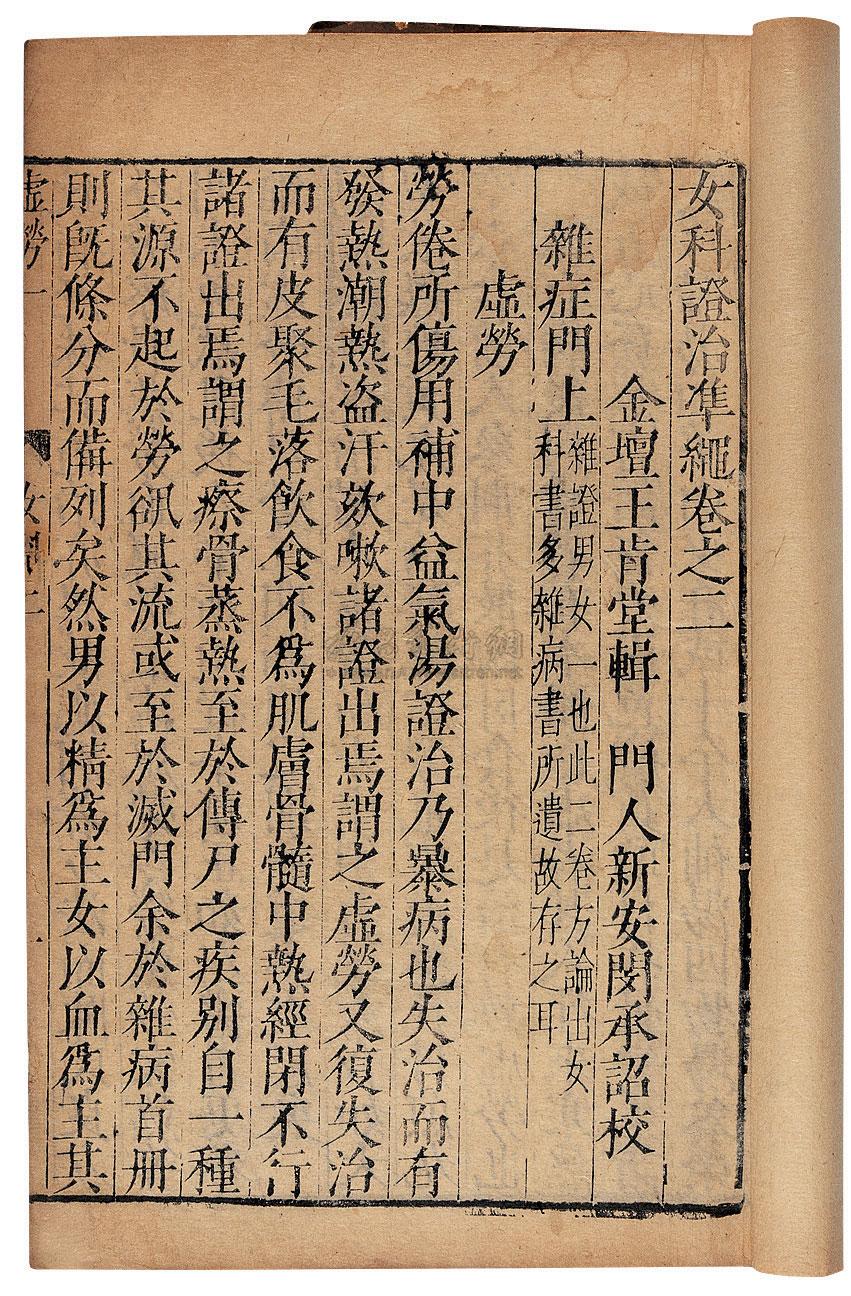 女科證治準繩卷之二
金壇王肯堂輯　門人新安閔承詔校
雜症門上
雜證男女一也此二卷方論出女
科書多雜病書所遺故存之耳
虛勞
勞倦所傷用補中益氣湯證治乃暴病也失治而有
發熱潮熱盗汗欬嗽諸證出焉謂之虛勞又復失治
而有皮聚毛落飲食不爲肌膚骨髓中熱經閉不行
諸證出焉謂之瘵骨蒸熱至於傳尸之疾别自一種
其源不起於勞𠡠其流或至於滅門余於雜病首册
則旣條分而備列矣然男以精爲主女以血爲主其
虛勞一
女科二